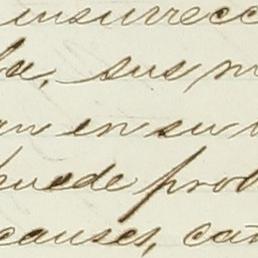 insurrecc
la, sus m
an en su
puede prob
causes, ca